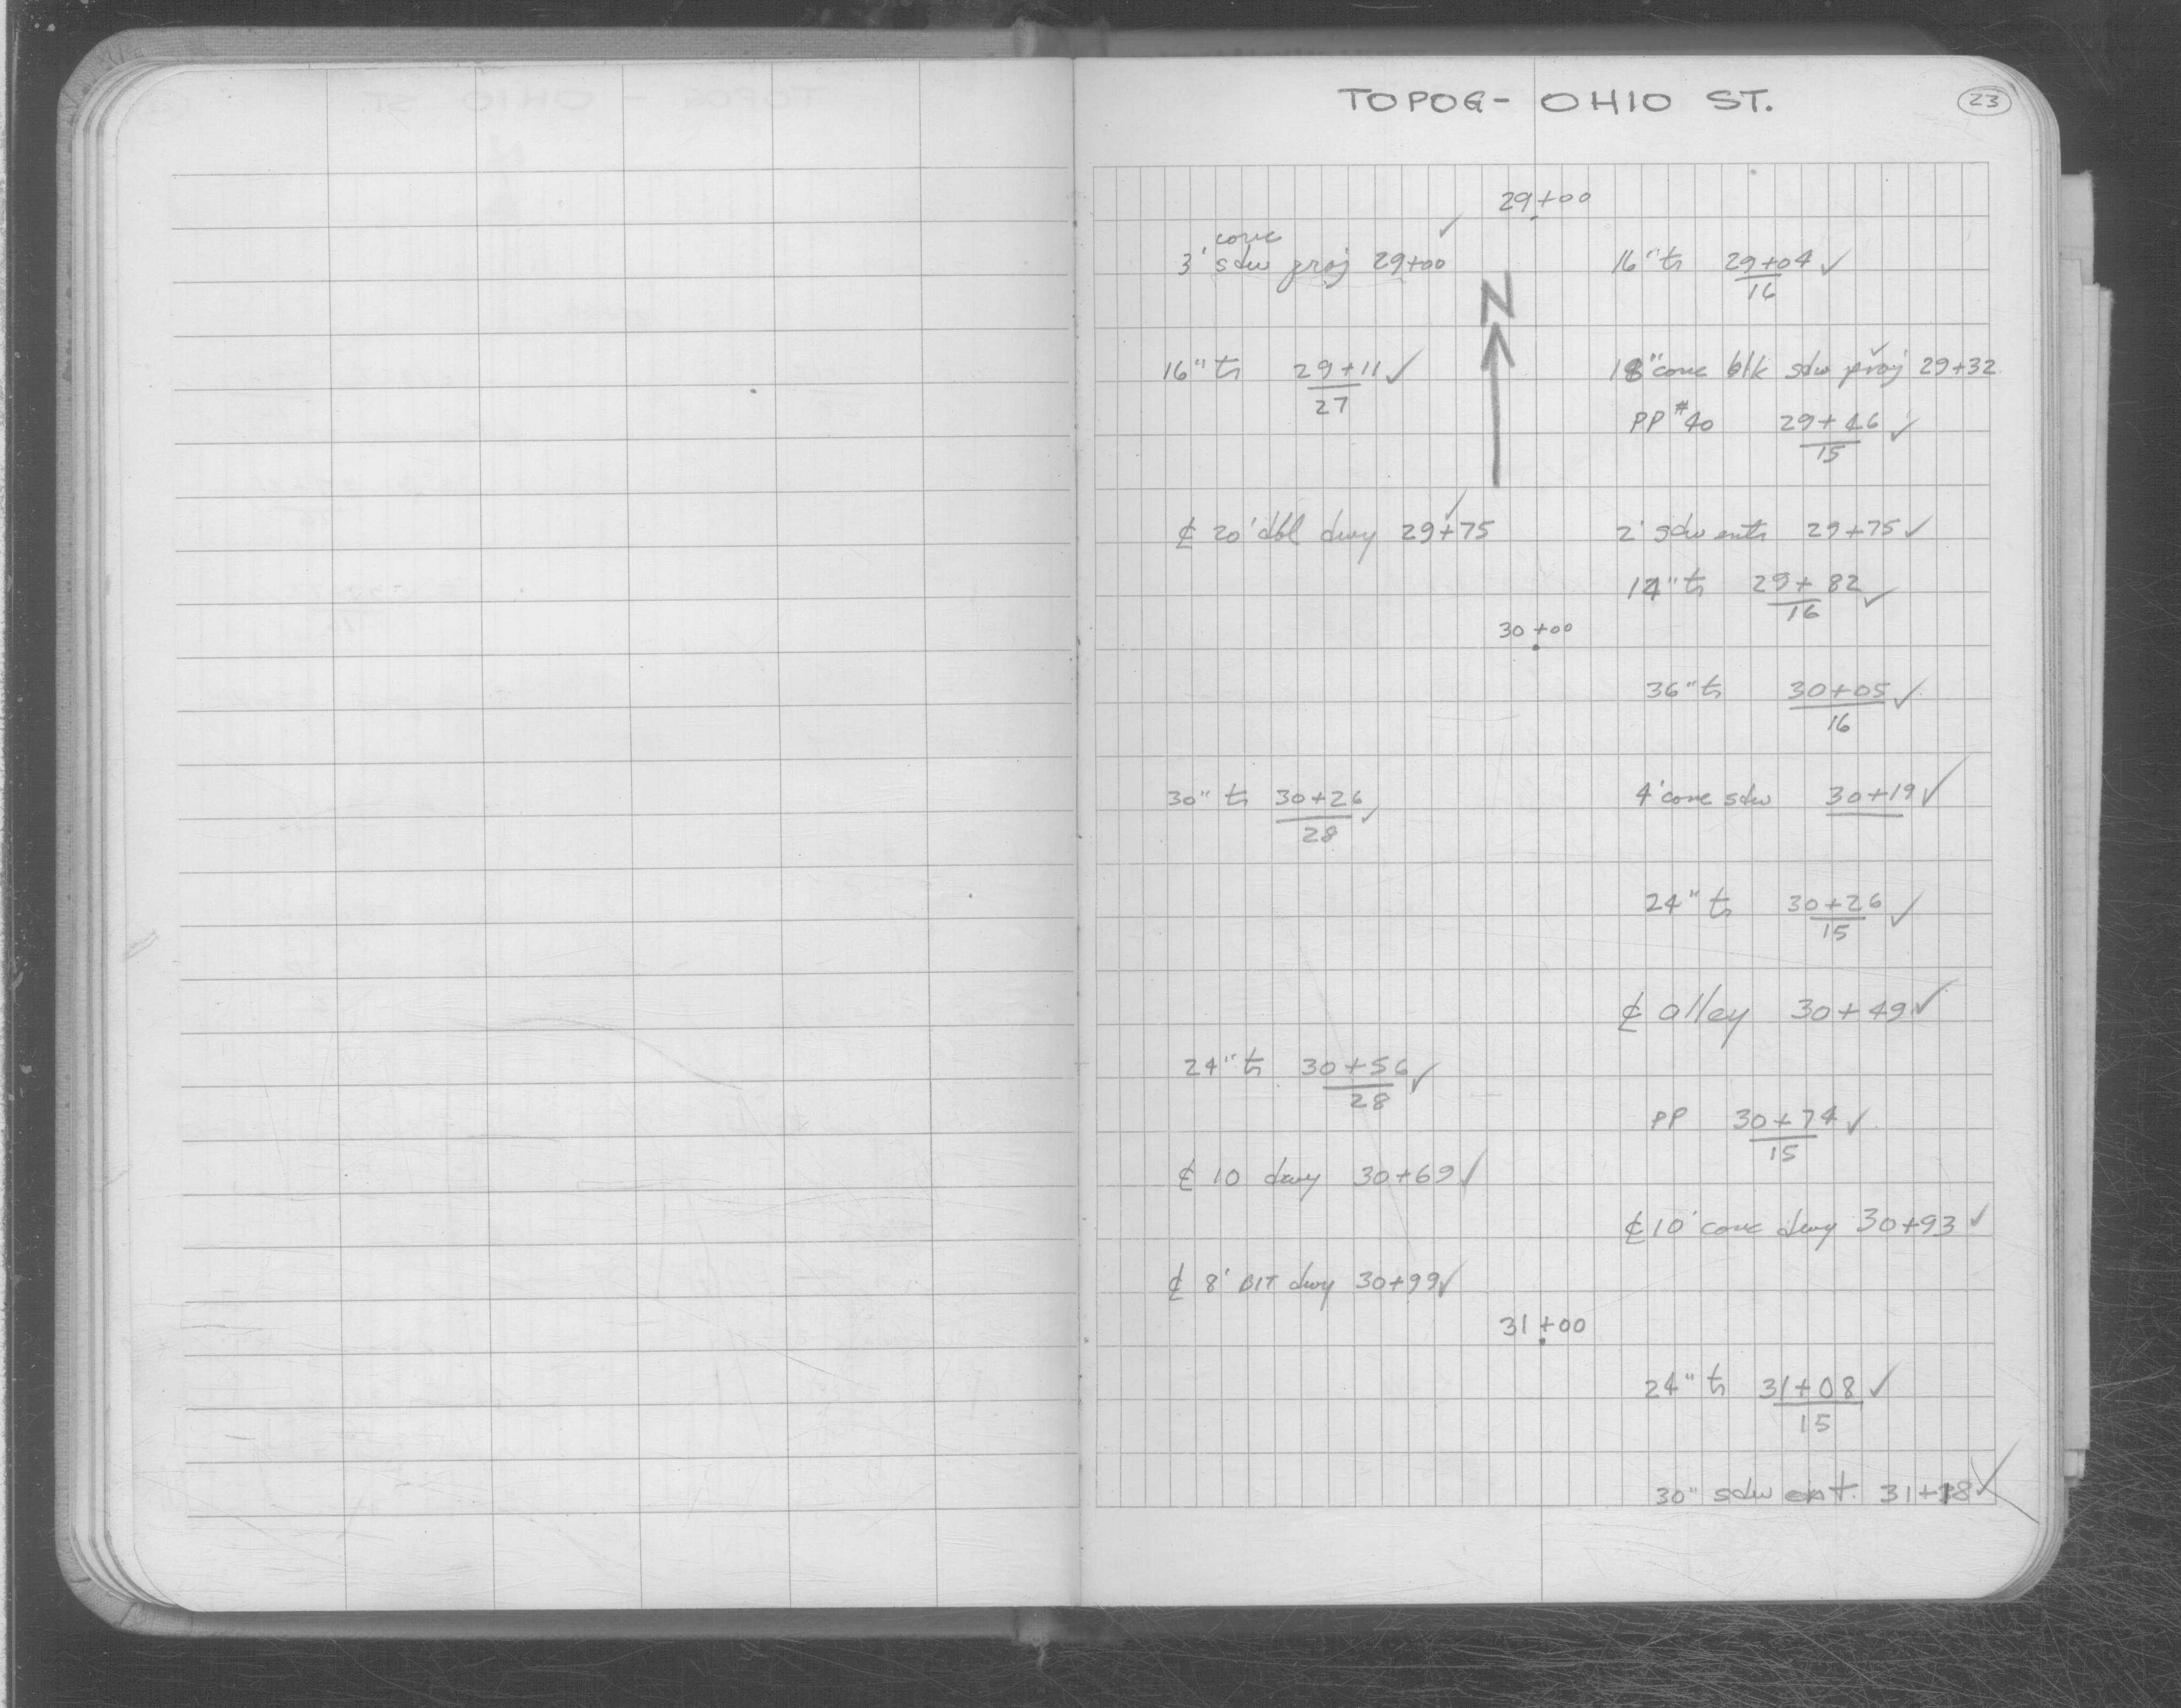 TOPOG- OHIO ST.
23
29+00
conc
3' sdw proj 29+00 ✓
16" tr 29+04 ✓
16
N
16" tr 29+11 ✓
27
18" conc blk sdw proj 29+32 ✓
PP #40 29+46 ✓
15
℄ 20' dbl dwy 29+75 ✓
2' sdw entr 29+75 ✓
14" tr 29+82 ✓
16
30+00
36" tr 30+05 ✓
16
30" tr 30+26 ✓
28
4' conc sdw 30+19 ✓
24" tr 30+26 ✓
15
℄ alley 30+49 ✓
24" tr 30+56 ✓
28
PP 30+74 ✓
15
℄ 10 dwy 30+69 ✓
℄ 10' conc dwy 30+93 ✓
℄ 8' BIT dwy 30+99 ✓
31+00
24" tr 31+08 ✓
15
30" sdw ent. 31+18 ✓